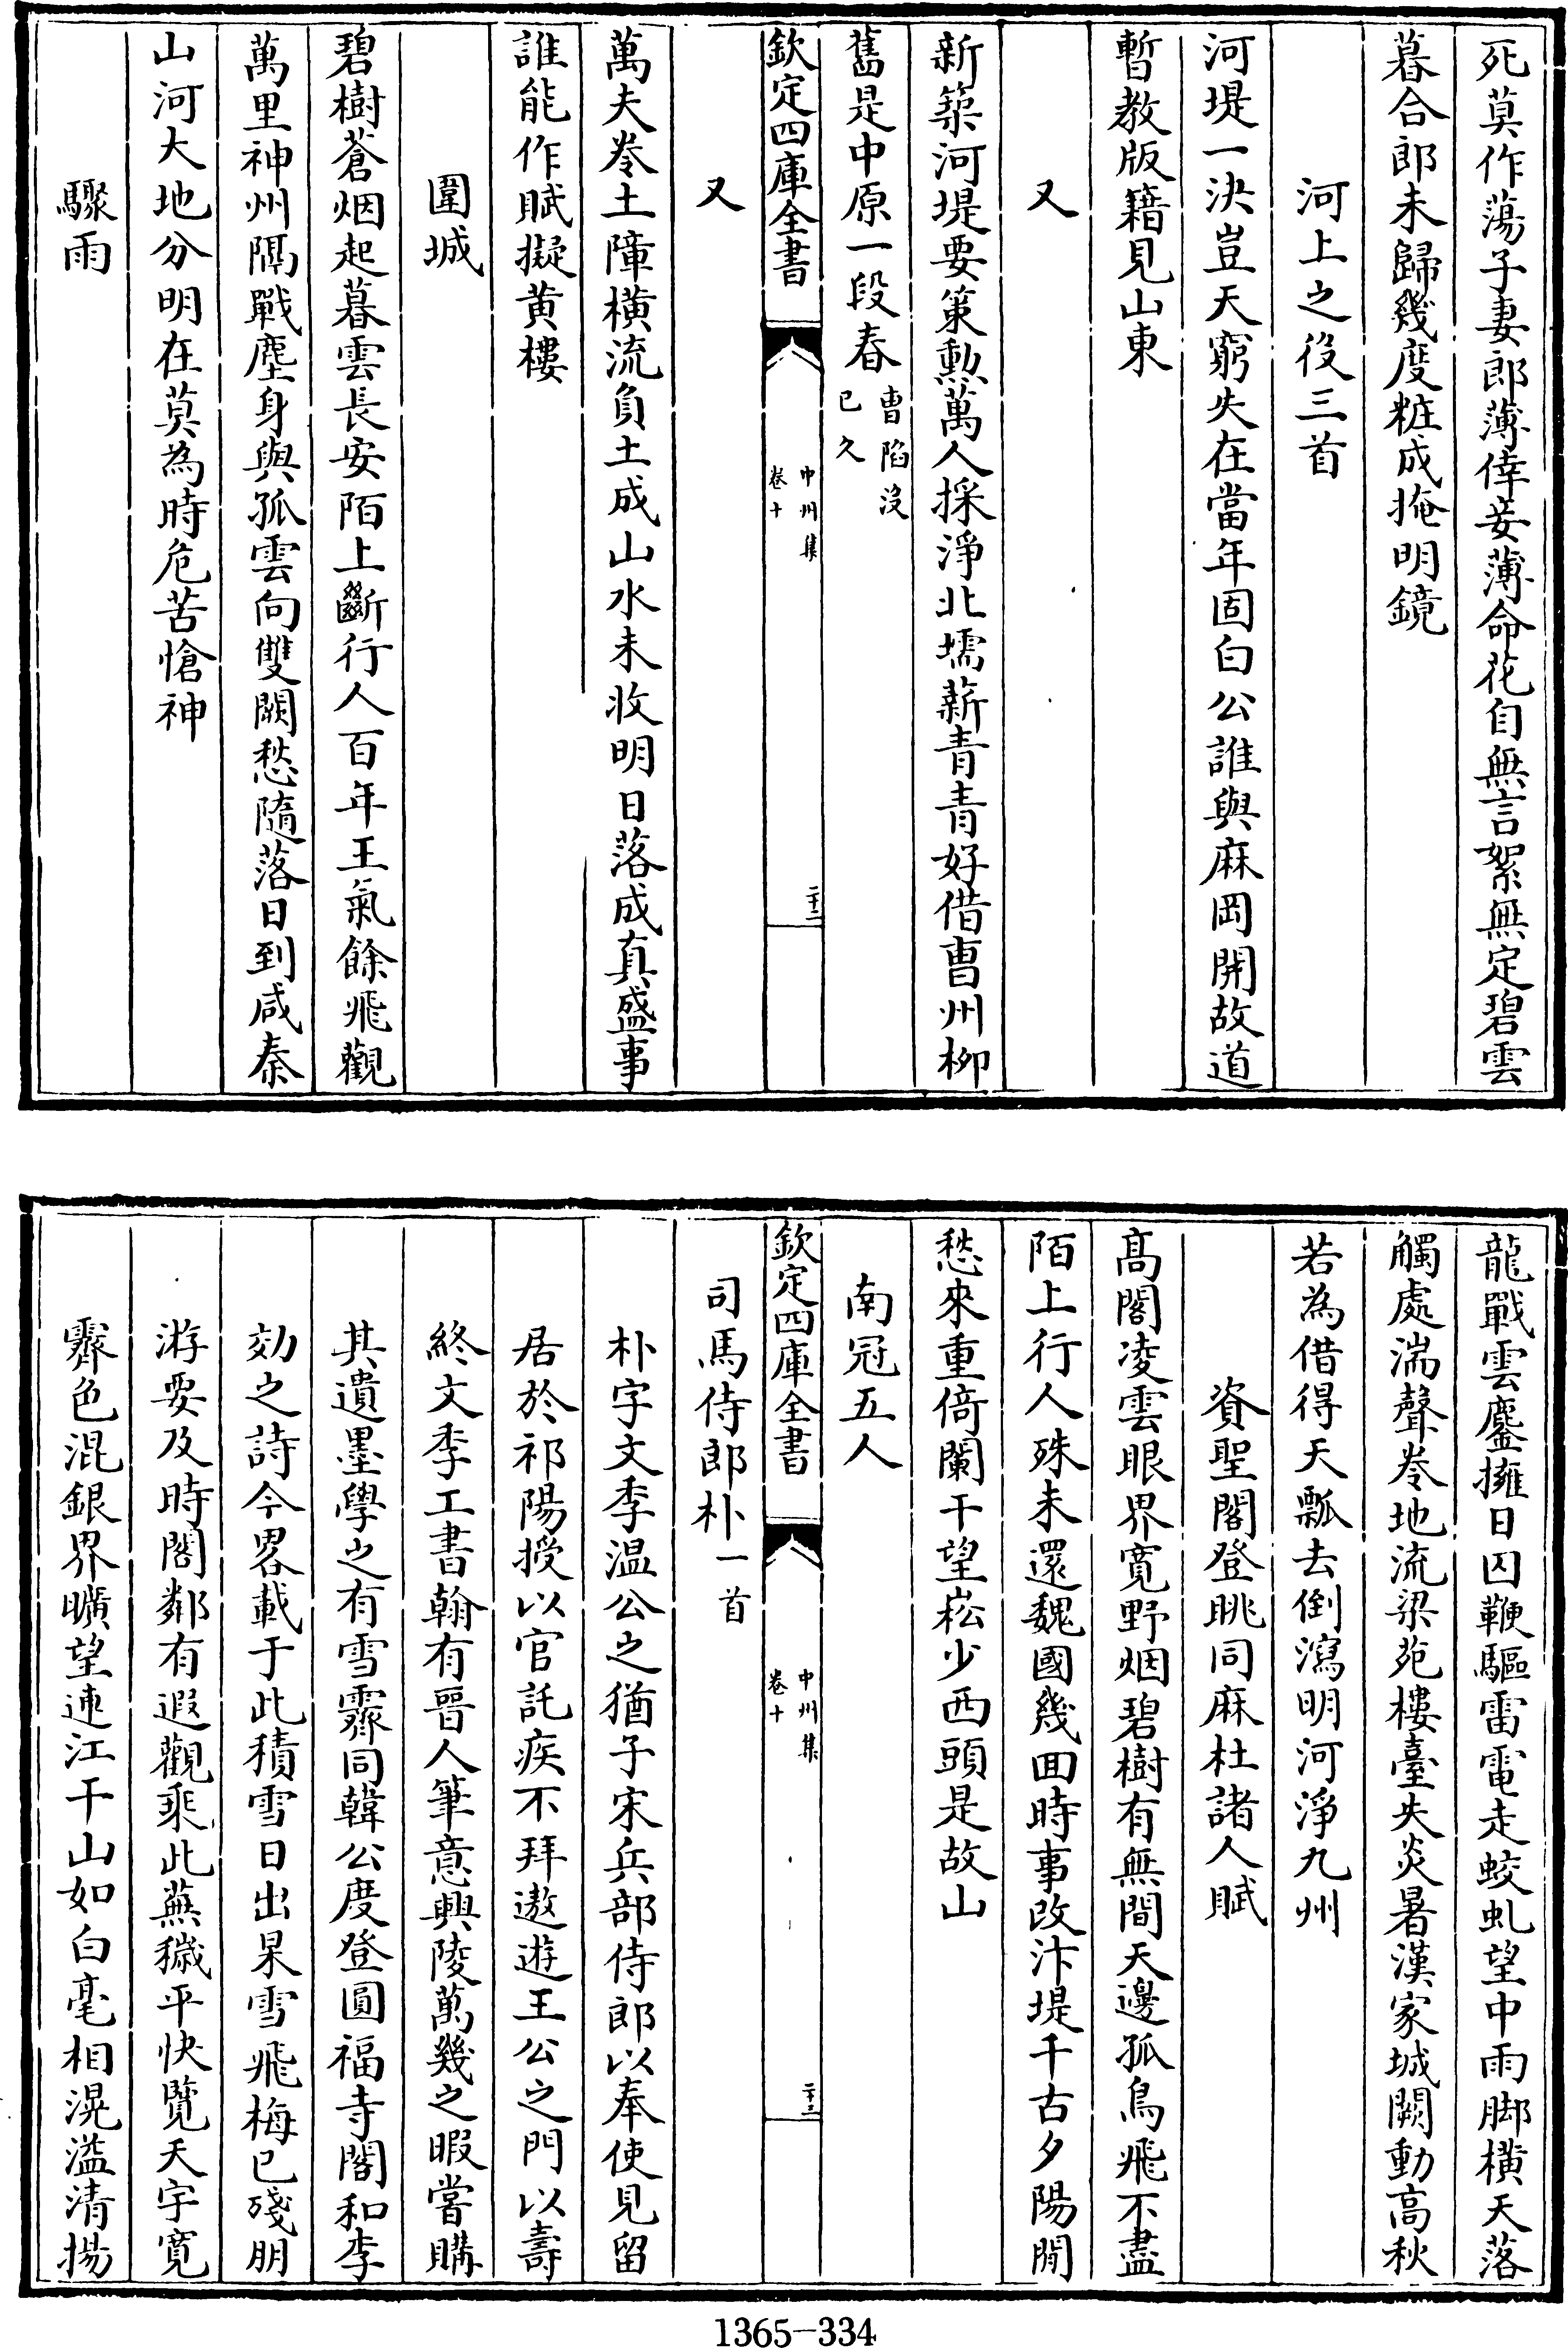 死莫作蕩子妻郎薄倖妾薄命花自無言絮無定碧雲
暮合郎未歸幾度粧成掩明鏡
河上之役三首
河堤一決豈天窮失在當年固白公誰與麻岡開故道
暫教版籍見山東
又
新築河堤要策勲萬人採淨北壖薪青青好借曹州柳
舊是中原一段春曹陷没已久
欽定四庫全書
中州集
卷十
二十二
又
萬夫卷土障橫流負土成山水未收明日落成真盛事
誰能作賦擬黄樓
圍城
碧樹蒼烟起暮雲長安陌上斷行人百年王氣餘飛觀
萬里神州隔戰塵身與孤雲向雙闕愁隨落日到咸秦
山河大地分明在莫為時危苦愴神
驟雨
龍戰雲鏖擁日囚鞭驅雷電走蛟虬望中雨脚橫天落
觸處湍聲卷地流梁苑樓臺失炎暑漢家城闕動高秋
若為借得天瓢去倒瀉明河淨九州
資聖閣登眺同麻杜諸人賦
髙閣凌雲眼界寛野烟碧樹有無間天邊孤鳥飛不盡
陌上行人殊未還魏國幾囬時事改汴堤千古夕陽閒
愁來重倚闌干望崧少西頭是故山
南冠五人
欽定四庫全書
中州集
卷十
二十三
司馬侍郎朴一首
朴字文季温公之猶子宋兵部侍郎以奉使見留
居於祁陽授以官託疾不拜遨遊王公之門以壽
終文季工書翰有晉人筆意興陵萬幾之暇嘗購
其遺墨學之有雪霽同韓公度登圓福寺閣和李
効之詩今畧載于此積雪日出杲雪飛梅已殘朋
游要及時閣鄰有遐觀乘此蕪穢平快覽天宇寛
霽色混銀界曠望連江干山如白毫相滉溢清揚
1365-334